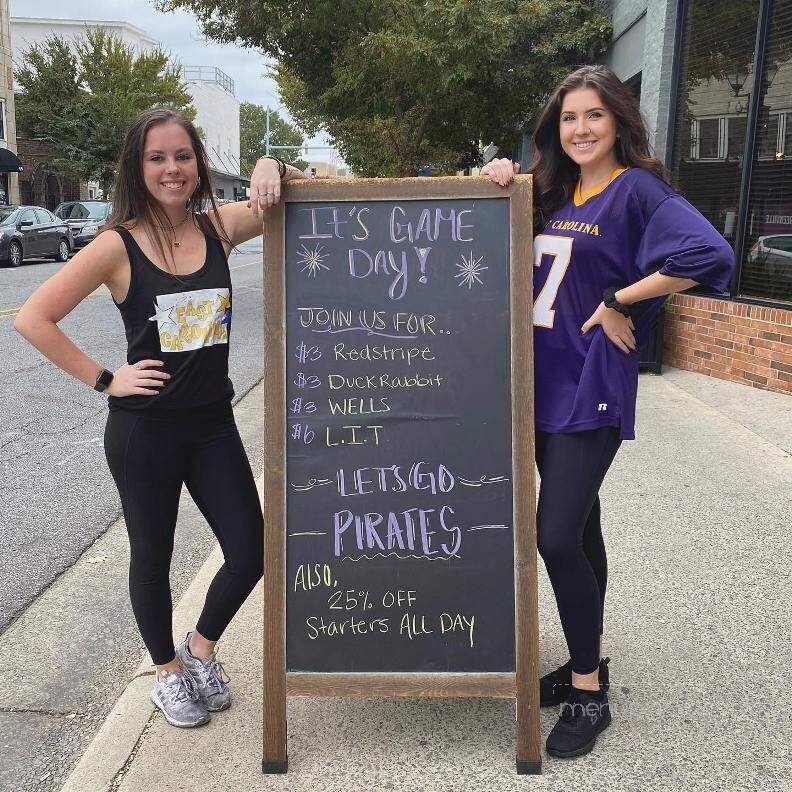 IT'S GAME
DAY!
JOIN US FOR..
$3 Redstripe
$3 DuckRabbit
$3 WELLS
$6 L.I.T
LETS GO
PIRATES
ALSO,
25% OFF
Starters ALL DAY
EAST
CAROLINA
CAROLINA
7
R